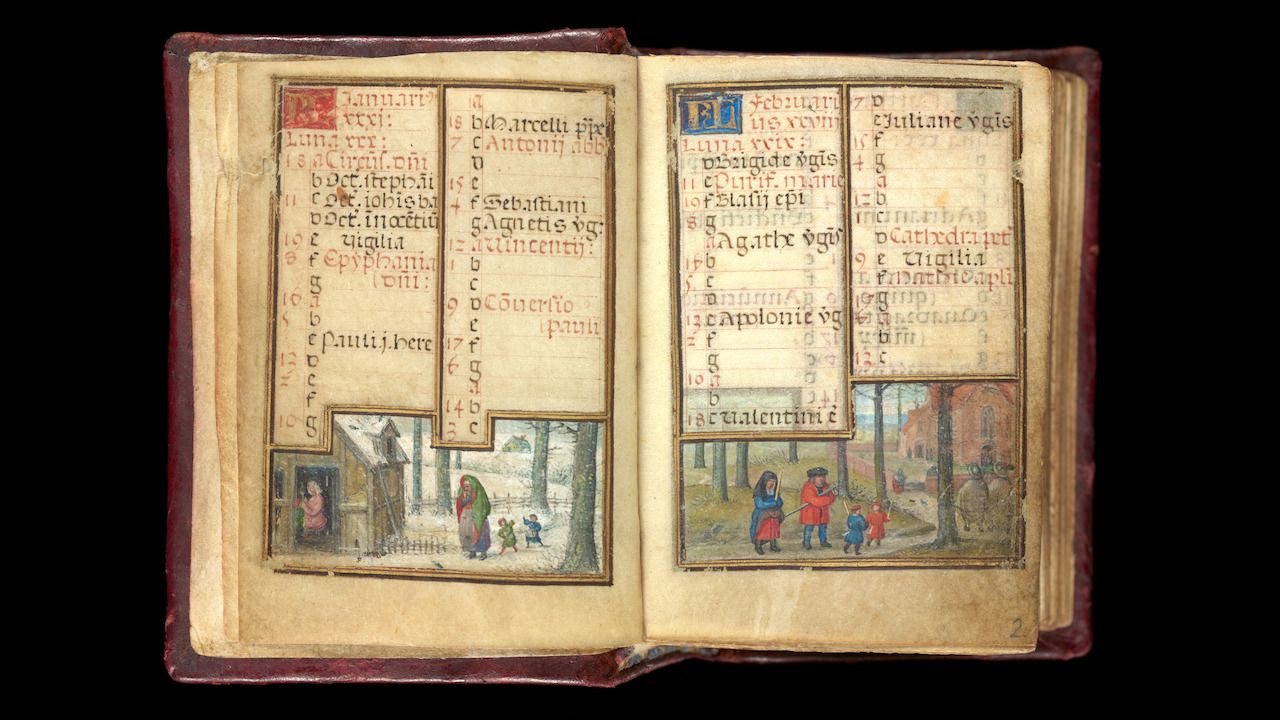 KL Januari9
xxxi:
Luna xxx:
18 a Circũs. dñi
b Oct. stephãi
11 c Oct. iohis ba
D Oct. ĩnocẽtiũ
19 e Uigilia
8 f Epyphania
g dñi:
16 a
5 b
c Pauli j. here
13 D
2 e
f
10 g
a
18 b Marcelli
7 c Antonij abb
D
15 e
4 f Sebastiani
g Agnetis ṽg:
12 a Uincentij:
1 b
c
9 D Cõuersio
e pauli
17 f
6 g
a
14 b
3 c
KL Februari
us xxviij
Luna xxix:
D Brigide ṽgis
11 e Purif. marie
19 f Blasij epi
8 g
a Agathe ṽgis
16 b
5 c
D
13 e Apolonie ṽg
2 f
g
10 a
b
18 c Ualentini
7 D
e Iuliane ṽgis
15 f
4 g
a
12 b
1 c
D Cathedra pet
9 e Uigilia
f Mathie apli
g
a
b
c
2